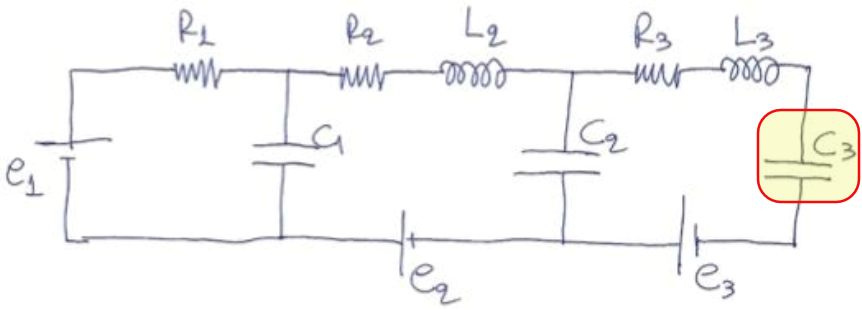 R1 R2 L2 R3 L3
C1 C2 C3
e1
e2 e3